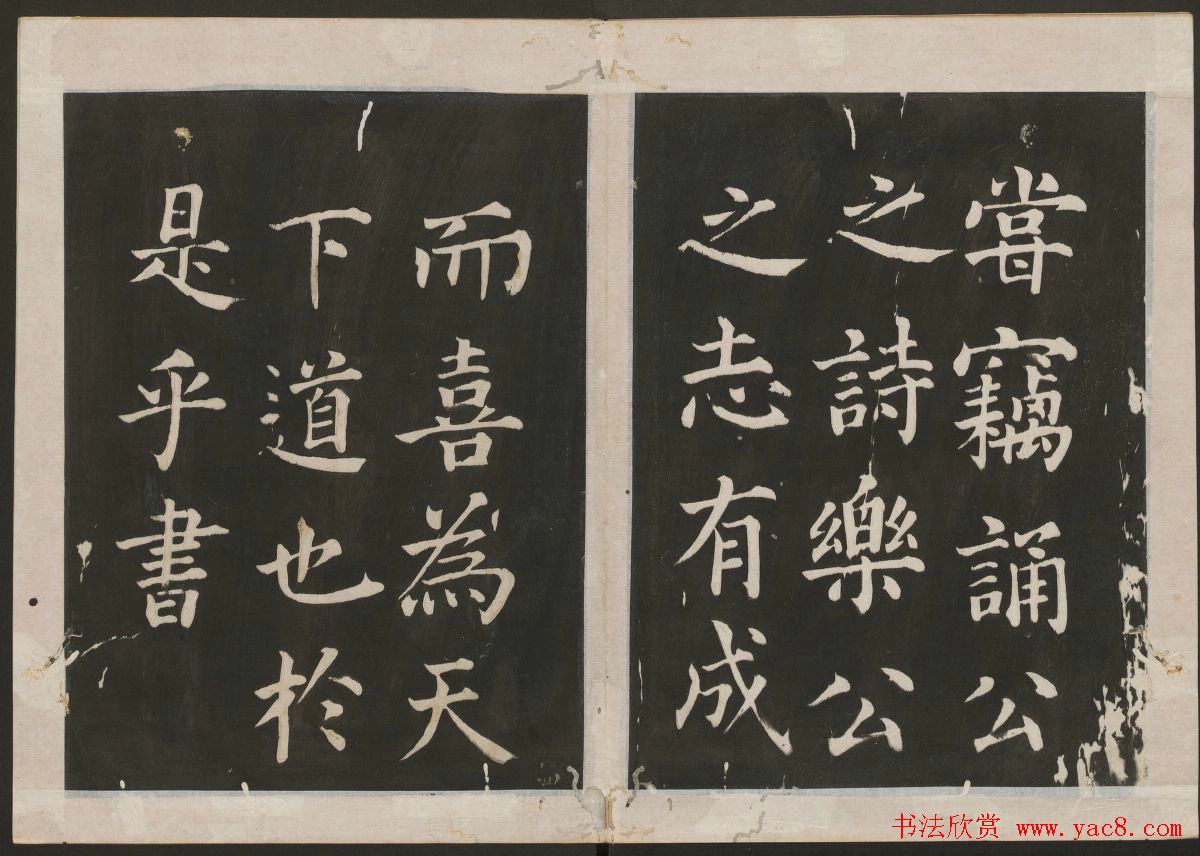 甞竊誦公
之詩樂公
之志有成
而喜為天
下道也於
是乎書
书法欣赏 www.yac8.com